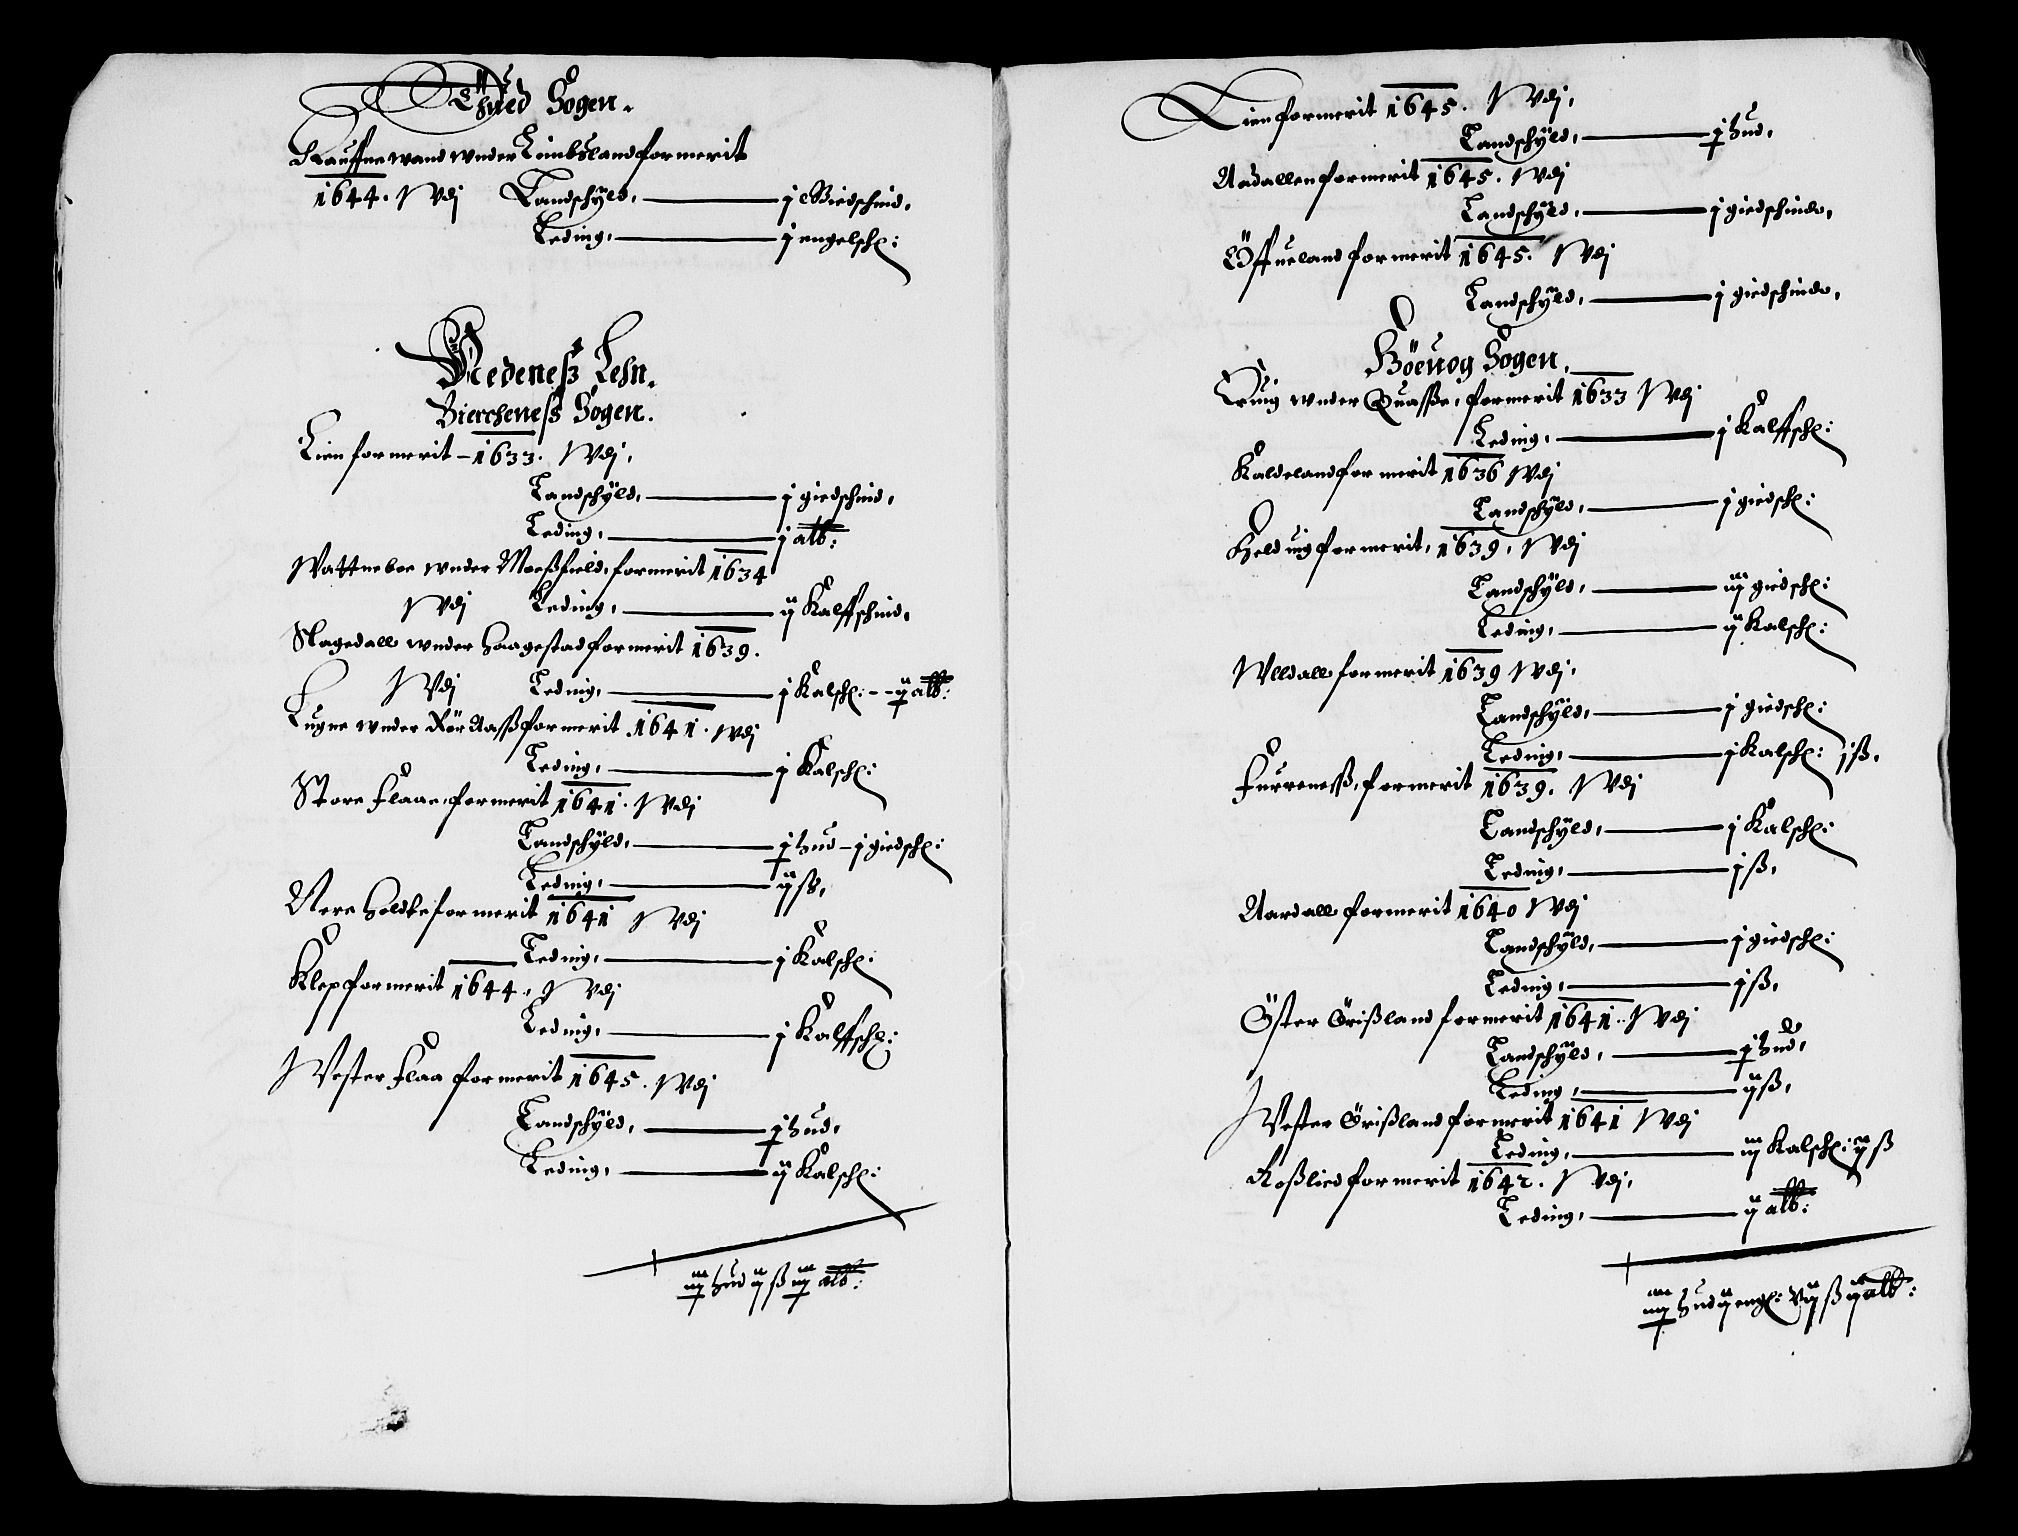 Thued Sogen.
Kauffnewand wnder Leinbsland formerit
1644. Wdj Landschÿld, j Giedschind,
Leding, j engelsch:
Nedeneß Lehn.
Bierckeneß Sogen.
Lien formerit - 1633. Wdj,
Landschÿld, j giedschind,
Leding, j alb:
Wattneboe wnder Moeßfield, formerit 1634
Wdj Leding, ij Kalffschind,
Nagedall wnder Haagestad formerit 1639.
Wdj Leding, j Kalsch: -- ij alb:
Lugne wnder Rör Aaß formerit 1641. Wdj
Leding, j Kalsch:
Store Flaae, formerit 1641. Wdj
Landschÿld, j hud - j giedsch:
Leding, ij ß,
Nere Holdte formerit 1641 Wdj
Leding, j Kalsch:
Klep formerit 1644, Wdj
Leding, j Kalffsch:
Wester Flaa formerit 1645. Wdj
Landschÿld, j hud,
Leding, ij Kalsch:
iiij hud ij ß iiij alb:
Lien formerit 1645. Wdj,
Landschÿld, j hud,
Aadallen formerit 1645. Wdj
Landschÿld, j giedschind,
Öffueland formerit 1645. Wdj
Landschÿld, j giedschind,
Höeuog Sogen,
wnder Quaße, formerit 1633 Wdj
Leding, j Kalffsch:
Kaldeland formerit 1636 Wdj
Landschÿld, j giedsch:
Helduig formerit, 1639, Wdj
Landschÿld, iij giedsch:
Leding, ij Kalsch:
Wlldall formerit 1639 Wdj,
Landschÿld, j giedsch:
Leding, j Kalsch: j ß,
Furreneß, formerit 1639. Wdj
Landschÿld, j Kalsch:
Leding, j ß,
Aardall formerit 1640 Wdj
Landschÿld, j giedsch:
Leding, j ß,
Öster Grißland formerit 1641. Wdj
Landschÿld, j hud,
Leding, ij ß,
Wester Grißland formerit 1641 Wdj
Leding, iij Kalsch: ij ß
Roßlied formerit 1642. Wdj,
Leding, ij alb:
hud ij engl: ß ij alb: